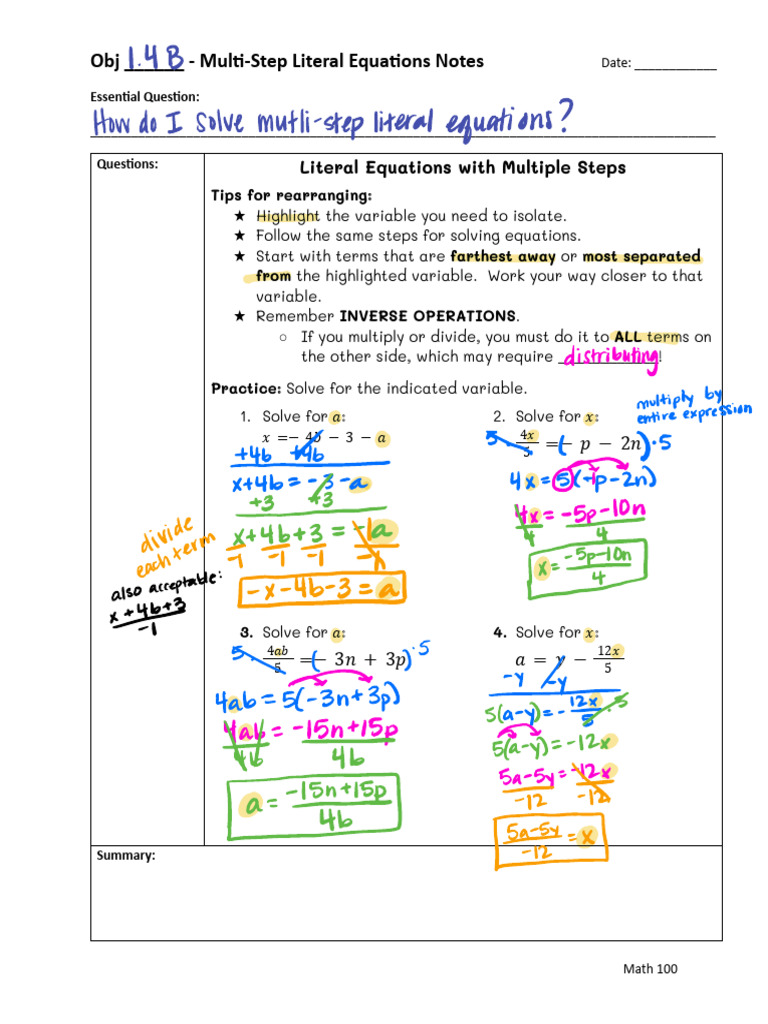 Obj 1.4B - Multi-Step Literal Equations Notes
Date: ____________
Essential Question:
How do I solve mutli-step literal equations?
Questions:
Literal Equations with Multiple Steps
Tips for rearranging:
★ Highlight the variable you need to isolate.
★ Follow the same steps for solving equations.
★ Start with terms that are farthest away or most separated
from the highlighted variable. Work your way closer to that
variable.
★ Remember INVERSE OPERATIONS.
○ If you multiply or divide, you must do it to ALL terms on
the other side, which may require distributing!
Practice: Solve for the indicated variable.
1. Solve for a:
x = − 4b − 3 − a
+4b +4b
x+4b = -3-a
+3 +3
x+4b+3 = -1a
-1 -1 -1 -1
-x-4b-3 = a
divide
each term
also acceptable:
x+4b+3
-1
2. Solve for x:
multiply by
entire expression
5· 4x/5 = (− p − 2n)·5
4x = 5(-1p-2n)
4x = -5p-10n
4 4
x = -5p-10n
4
3. Solve for a:
5· 4ab/5 = (− 3n + 3p)·5
4ab = 5(-3n+3p)
4ab = -15n+15p
4b 4b
a = -15n+15p
4b
4. Solve for x:
a = y − 12x/5
-y -y
5(a-y) = - 12x/5 ·5
5(a-y) = -12x
5a-5y = -12x
-12 -12
5a-5y = x
-12
Summary:
Math 100